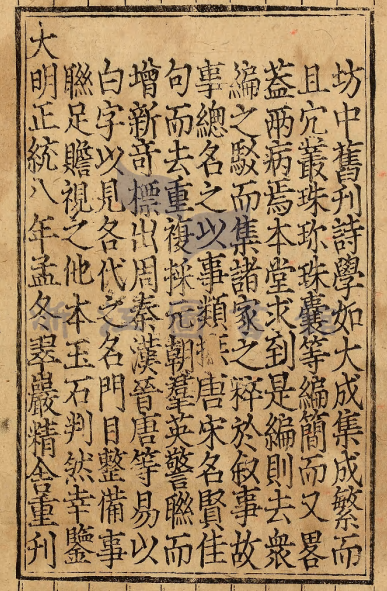 坊中舊刊詩學如大成集成繁而
且冗叢珠珎珠囊等編簡而又畧
葢兩病焉本堂求到是編則去衆
編之駁而集諸家之粹於叙事故
事總名之以事類摭唐宋名賢佳
句而去重複採元朝羣英警聯而
增新竒標出周秦漢晉唐等易以
白字以見各代之名門目整備事
聯足贍視之他本玉石判然幸鑒
大明正統八年孟冬翠巖精舍重刊